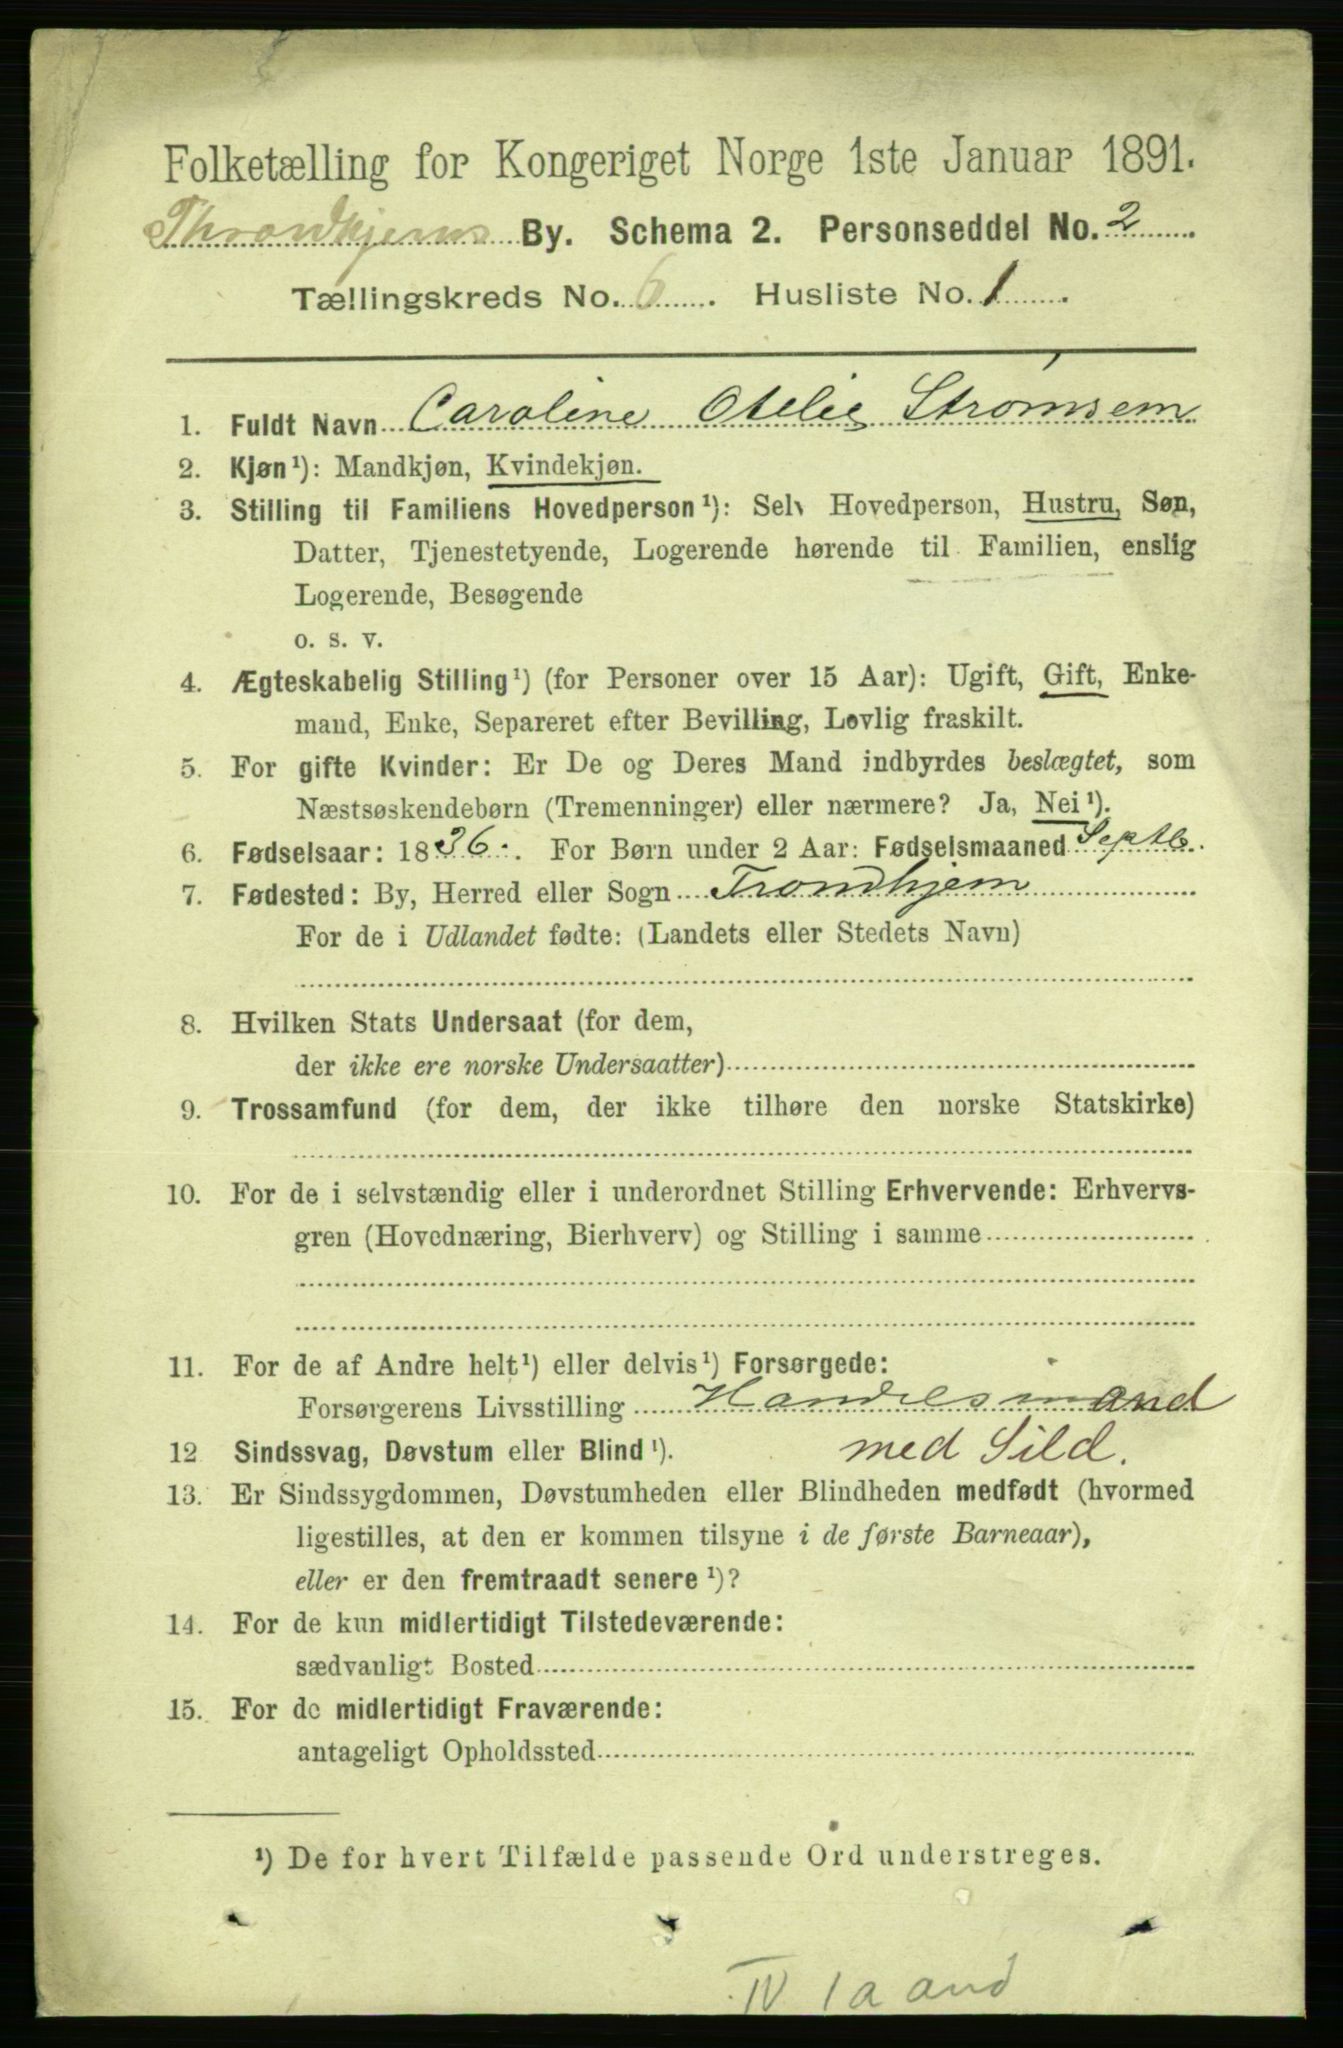 Folketælling for Kongeriget Norge 1ste Januar 1891.
Throndhjems By. Schema 2. Personseddel No. 2
Tællingskreds No. 6. Husliste No. 1.
1. Fuldt Navn Caroline Otelie Strømsem
2. Kjøn¹): Mandkjøn, Kvindekjøn.
3. Stilling til Familiens Hovedperson¹): Selv Hovedperson, Hustru, Søn,
Datter, Tjenestetyende, Logerende hørende til Familien, enslig
Logerende, Besøgende
o. s. v.
4. Ægteskabelig Stilling¹) (for Personer over 15 Aar): Ugift, Gift, Enke-
mand, Enke, Separeret efter Bevilling, Lovlig fraskilt.
5. For gifte Kvinder: Er De og Deres Mand indbyrdes beslægtet, som
Næstsøskendebørn (Tremenninger) eller nærmere? Ja, Nei¹).
6. Fødselsaar: 1836. For Børn under 2 Aar: Fødselsmaaned Septb.
7. Fødested: By, Herred eller Sogn Trondhjem
For de i Udlandet fødte: (Landets eller Stedets Navn)
8. Hvilken Stats Undersaat (for dem,
der ikke ere norske Undersaatter)
9. Trossamfund (for dem, der ikke tilhøre den norske Statskirke)
10. For de i selvstændig eller i underordnet Stilling Erhvervende: Erhvervs-
gren (Hovednæring, Bierhverv) og Stilling i samme
11. For de af Andre helt¹) eller delvis¹) Forsørgede:
Forsørgerens Livsstilling Handelsmand
med Sild.
12 Sindssvag, Døvstum eller Blind¹).
13. Er Sindssygdommen, Døvstumheden eller Blindheden medfødt (hvormed
ligestilles, at den er kommen tilsyne i de første Barneaar),
eller er den fremtraadt senere¹)?
14. For de kun midlertidigt Tilstedeværende:
sædvanligt Bosted
15. For de midlertidigt Fraværende:
antageligt Opholdssted
¹) De for hvert Tilfælde passende Ord understreges.
IV 1a and